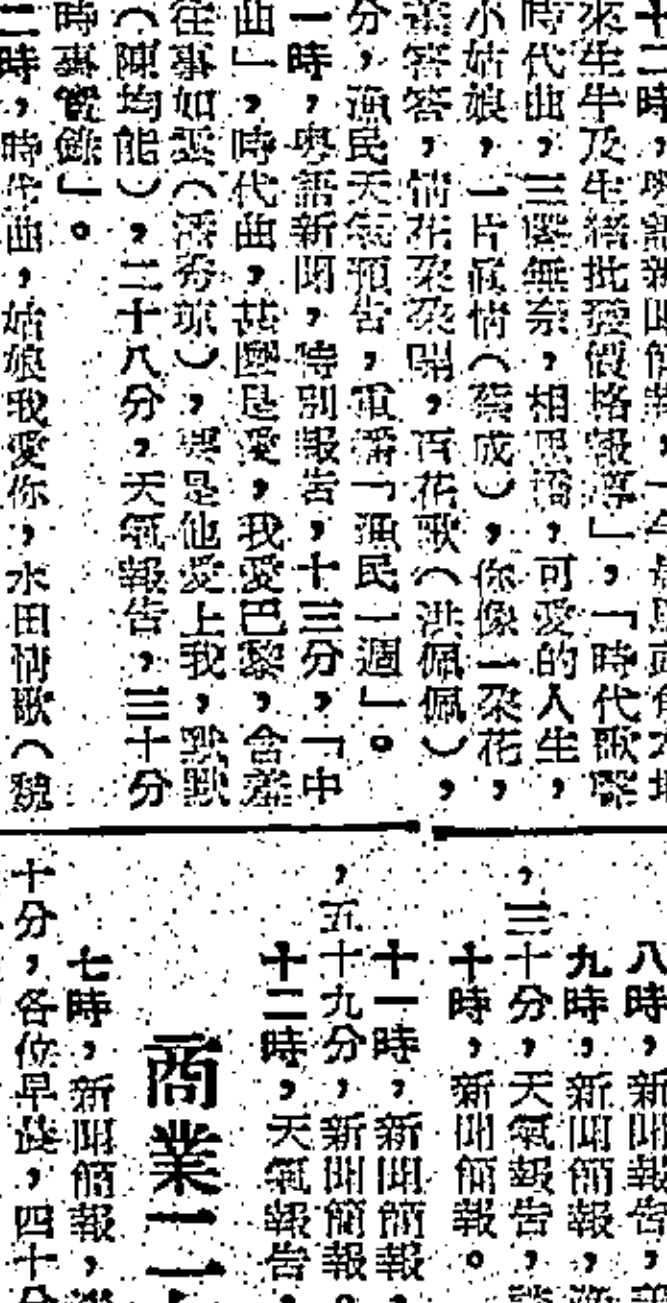 十二時，粵語新聞簡報，
來生牛及生豬批發價格報導」，「時代歌聲
時代曲，三聲無奈，相思橋，可愛的人生，
小姑娘，一片眞情（蔡成），你像一朶花，
羞答答，情花朶朶開，百花歌（洪佩佩），
分，漁民天氣預告，重播「漁民一週」。
一時，粵語新聞，特別報告，十三分，「中
曲」，時代曲，甚麼是愛，我愛巴黎，含羞
往事如烟（潘秀瓊），果是他愛上我，默默
（陳均能），二十八分，天氣報告，三十分
時事實錄」。
二時，時代曲，姑娘我愛你，水田情歌（魏
八時，新聞報告，
九時，新聞簡報，
，三十分，天氣報告，
十時，新聞簡報。
十一時，新聞簡報
，五十九分，新聞簡報。
十二時，天氣報告，
商業二
七時，新聞簡報，
十分，各位早晨，四十分